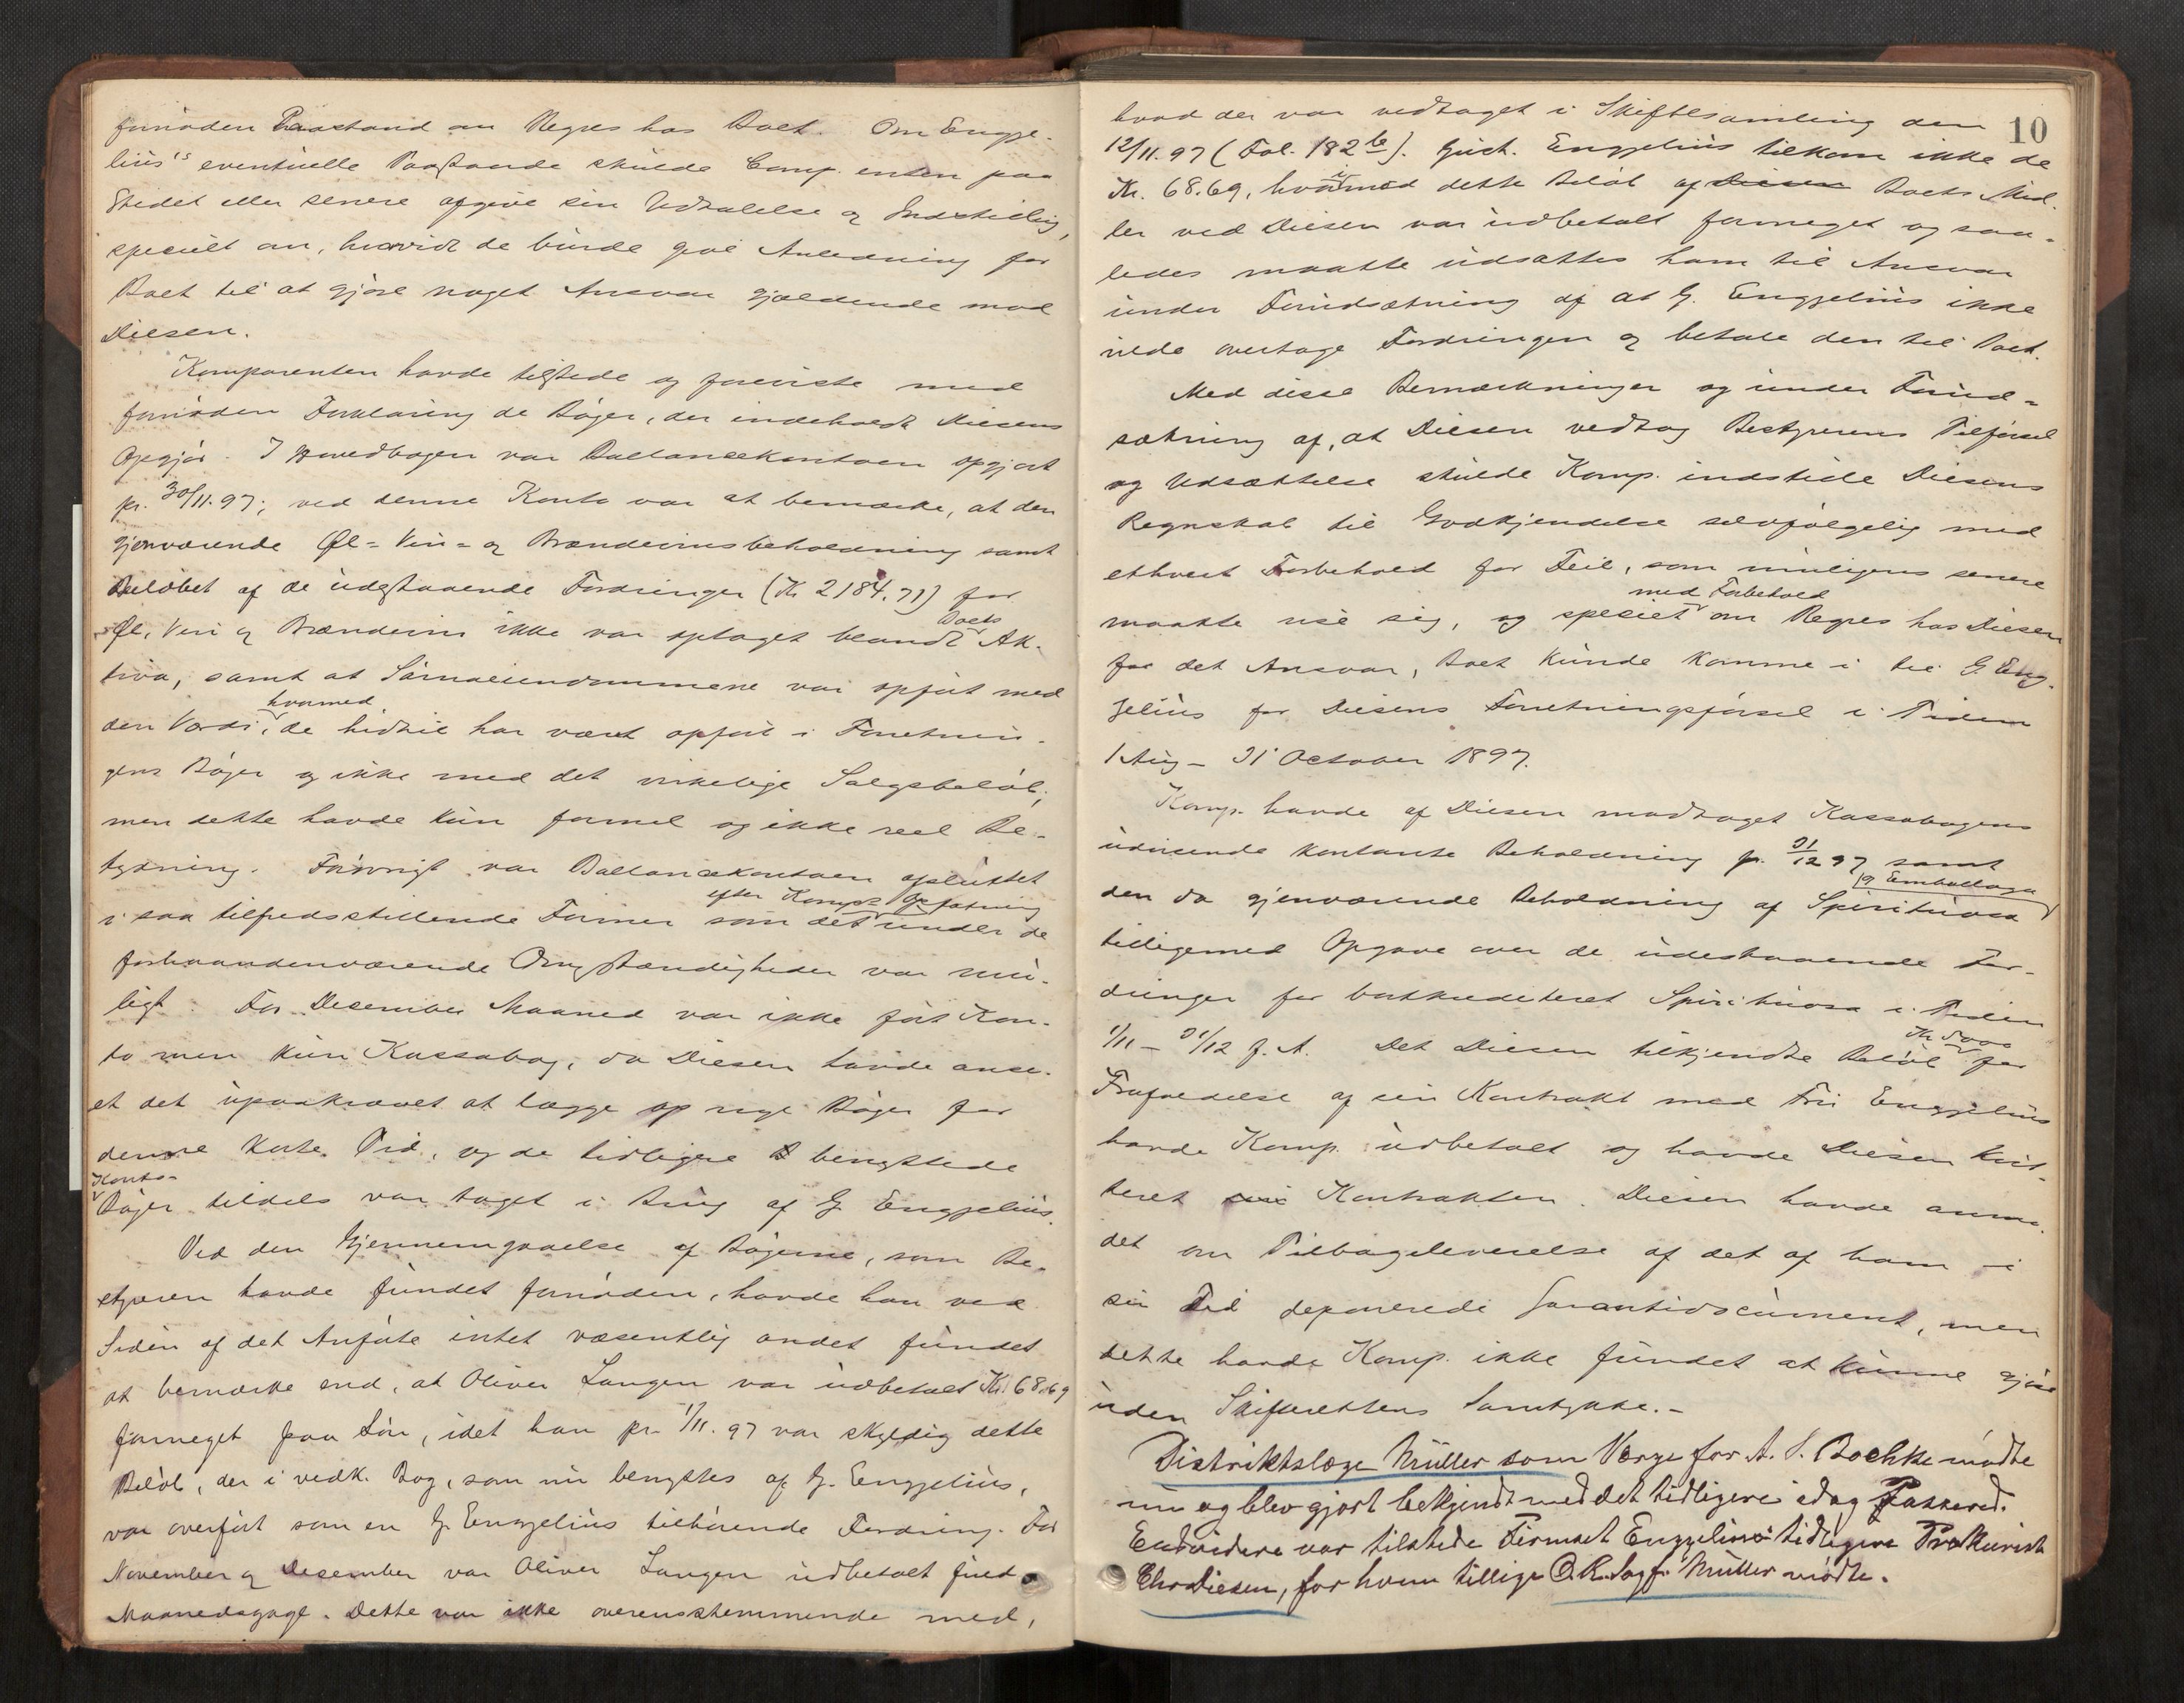 fornøden Paastand om Regres hos Boet. Om Engze-
lius's eventuelle Paastande skulde Comp. enten paa
Stedet eller senere afgive sin Udtalelse og Indstilling,
specielt om, hvorvidt de burde give Anledning for
Boet til at gjøre noget Ansvar gjældende mod
Diesen.
Komparenten havde tilstede og foreviste med
fornøden Forklaring de Bøger, der indeholdt Diesens
Opgjør. I Hovedbogen var Ballancekontoen opgjort
pr. 30/11.97; ved denne Konto var at bemærke, at den
gjenværende Øl- Vin- og Brændevinsbeholdning samt
Beløbet af de udestaaende Fordringer (Kr 2184.71) for
Øl, Vin og Brændevin ikke var optaget blandt Boets Ak-
tiva, samt at Sørnæseiendommene var opført med
den Værdi, hvormed de hidtil har været opført i Forretnin-
gens Bøger og ikke med det virkelige Salgsbeløb,
men dette havde kun formel og ikke reel Be-
tydning. Forøvrigt var Ballancekontoen afsluttet
i saa tilfredsstillende Former som det efter Komps Opfatning under de
forhaandenværende Omstændigheder var mu-
ligt. For Desember Maaned var ikke ført Kon-
to men kun Kassabog, da Diesen havde anse-
et det upaakrævet at lægge op nye Bøger for
denne korte Tid, og de tidligere benyttede
Konto-Bøger tildels var taget i Brug af G. Engzelius.
Ved den Gjennemgaaelse af Bøgerne, som Be-
styreren havde fundet fornøden, havde han ved
Siden af det Anførte intet væsentlig andet fundet
at bemærke end, at Oliver Langen var udbetalt Kr 68.69
formeget paa Løn, idet han pr. 1/11.97 var skyldig dette
Beløb, der i vedk. Bog, som nu benyttes af G. Engzelius,
var overført som en G. Engzelius tilhørende Fordring. For
November og Desember var Oliver Langen udbetalt fuld
Maanedsgage. Dette var ikke overensstemmende med,
10
hvad der var vedtaget i Skiftesamling den
12/11.97 (Fol. 182 b). Gust. Engzelius tilkom ikke de
Kr. 68.69, hvormed dette Beløb af Boets Mid-
ler ved Diesen var udbetalt formeget og saa-
ledes maatte udsættes ham til Ansvar
under Forudsætning af at G. Engzelius ikke
vilde overtage Fordringen og betale den til Boet.
Med disse Bemærkninger og under Forud-
sætning af, at Diesen vedtog Bestyrerens Tilførsel
og Udsættelse skulde Komp. indstille Diesens
Regnskab til Godkjendelse selvfølgelig med
ethvert Forbehold for Feil, som muligens senere
maatte vise sig, og specielt med Forbehold om Regres hos Diesen
for det Ansvar, Boet kunde komme i til G. Eng-
zelius for Diesens Forretningsførsel i Tiden
1 Aug - 31 October 1897.
Komp. havde af Diesen modtaget Kassabogens
udvisende kontante Beholdning pr. 31/12 97 samt
den da gjenværende Beholdning af Spirituosa og Emballage
tilligemed Opgave over de udestaaende For-
dringer for bortkrediteret Spirituosa i Tiden
1/11 - 31/12 f. A. Det Diesen tilkjendte Beløb for
Fratrædelse af sin Kontrakt med Fru Engzelius
havde Komp. udbetalt og havde Diesen kvit-
teret Kontrakten. Diesen havde anmo-
det om Tilbageleverelse af det af ham i
sin Tid deponerede Garantidocument, men
dette havde Komp. ikke fundet at kunne gjøre
uden Skifterettens Samtykke.-
Distriktslæge Müller som Værge for A. S. Bochke mødte
nu og blev gjort bekjendt med det tidligere idag Passered.
Endvidere var tilstede Firmaet Engzelius' tidligere Prokurist
Chr Diesen, for hvem tillige O.R.Sagf. Müller mødte.